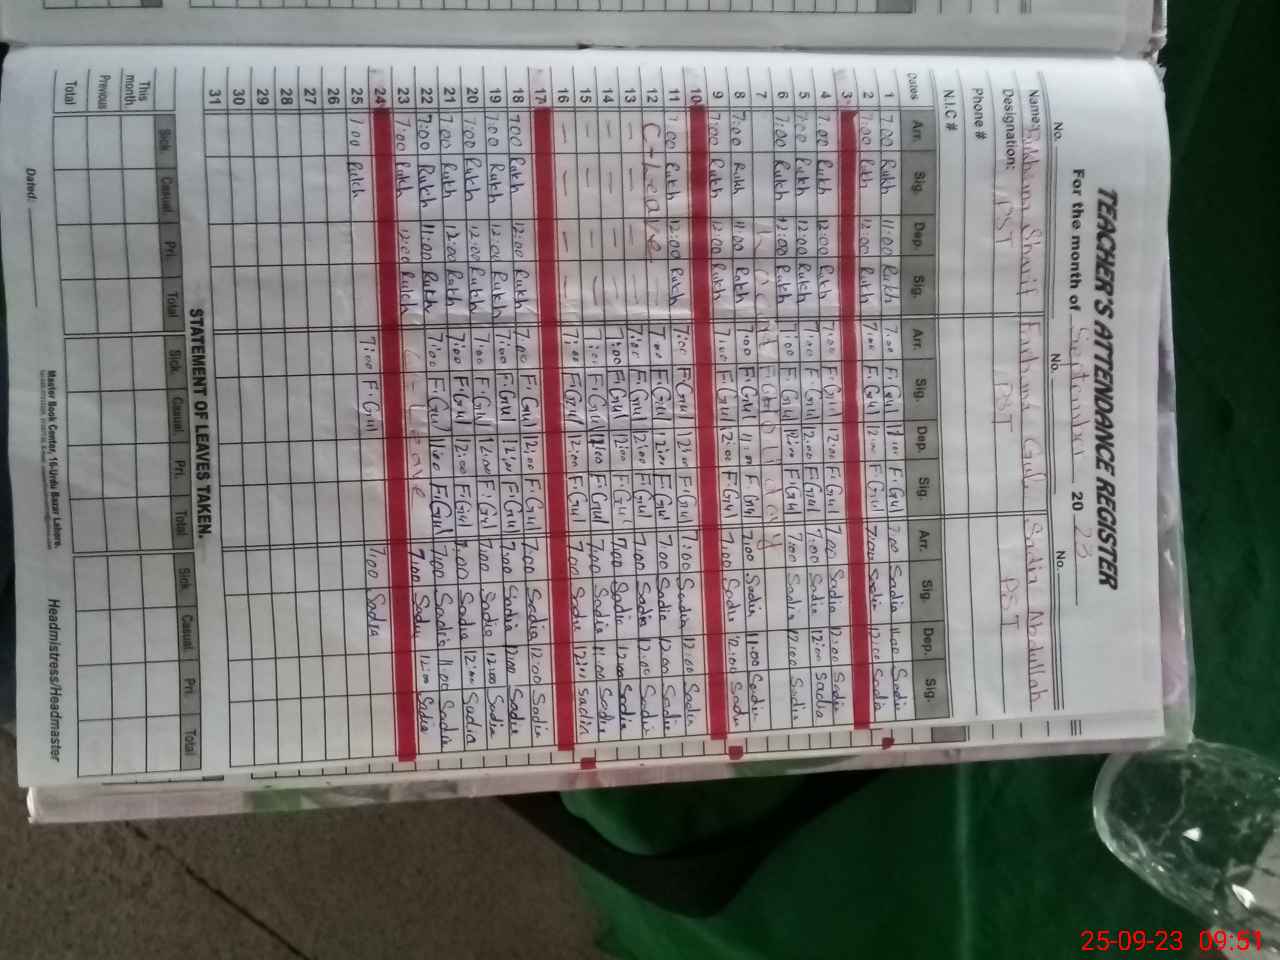 TEACHER'S ATTENDANCE REGISTER
For the month of September 2023
No. No. No.
Name: Sharif Farhana Gul Sadia Abdullah
Designation: PST PST PST
Phone #
N.I.C #
Dates Arr. Sig. Dep. Sig. Arr. Sig. Dep. Sig. Arr. Sig. Dep. Sig.
1 7:00 Rukh 11:00 Rukh 7:00 F.Gul 11:00 F.Gul 7:00 Sadia 11:00 Sadia
2 7:00 Rukh 12:00 Rukh 7:00 F.Gul 12:00 F.Gul 7:00 Sadia 12:00 Sadia
3
4 7:00 Rukh 12:00 Rukh 7:00 F.Gul 12:00 F.Gul 7:00 Sadia 12:00 Sadia
5 7:00 Rukh 12:00 Rukh 7:00 F.Gul 12:00 F.Gul 7:00 Sadia 12:00 Sadia
6 7:00 Rukh 12:00 Rukh 7:00 F.Gul 12:00 F.Gul 7:00 Sadia 12:00 Sadia
7
8 7:00 Rukh 11:00 Rukh 7:00 F.Gul 11:00 F.Gul 7:00 Sadia 11:00 Sadia
9 7:00 Rukh 12:00 Rukh 7:00 F.Gul 12:00 F.Gul 7:00 Sadia 12:00 Sadia
10
11 7:00 Rukh 12:00 Rukh 7:00 F.Gul 12:00 F.Gul 7:00 Sadia 12:00 Sadia
12 C-Leave 7:00 F.Gul 12:00 F.Gul 7:00 Sadia 12:00 Sadia
13 — — — — 7:00 F.Gul 12:00 F.Gul 7:00 Sadia 12:00 Sadia
14 — — — — 7:00 F.Gul 12:00 F.Gul 7:00 Sadia 12:00 Sadia
15 — — — — 7:00 F.Gul 11:00 F.Gul 7:00 Sadia 11:00 Sadia
16 — — — — 7:00 F.Gul 12:00 F.Gul 7:00 Sadia 12:00 Sadia
17
18 7:00 Rukh 12:00 Rukh 7:00 F.Gul 12:00 F.Gul 7:00 Sadia 12:00 Sadia
19 7:00 Rukh 12:00 Rukh 7:00 F.Gul 12:00 F.Gul 7:00 Sadia 12:00 Sadia
20 7:00 Rukh 12:00 Rukh 7:00 F.Gul 12:00 F.Gul 7:00 Sadia 12:00 Sadia
21 7:00 Rukh 12:00 Rukh 7:00 F.Gul 12:00 F.Gul 7:00 Sadia 12:00 Sadia
22 7:00 Rukh 11:00 Rukh 7:00 F.Gul 11:00 F.Gul 7:00 Sadia 11:00 Sadia
23 7:00 Rukh 12:00 Rukh C-Leave 7:00 Sadia 12:00 Sadia
24
25 7:00 Rukh 7:00 F.Gul 7:00 Sadia
26
27
28
29
30
31
STATEMENT OF LEAVES TAKEN.
Sick. Casual. Pri. Total Sick. Casual. Pri. Total Sick. Casual. Pri. Total
This month
Previous
Total
Dated:
Master Book Center, 16-Urdu Bazar Lahore.
Headmistress/Headmaster
25-09-23 09:51